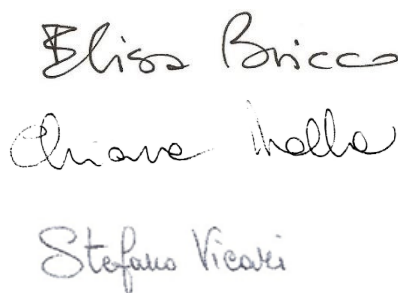 Elisa Bricco
Chiara
Stefano Vicari